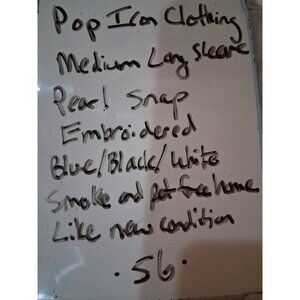 Pop Icon Clothing
Medium Long Sleeve
Pearl Snap
Embroidered
Blue/Black/White
Smoke and pet free home
Like new condition
. 56 .